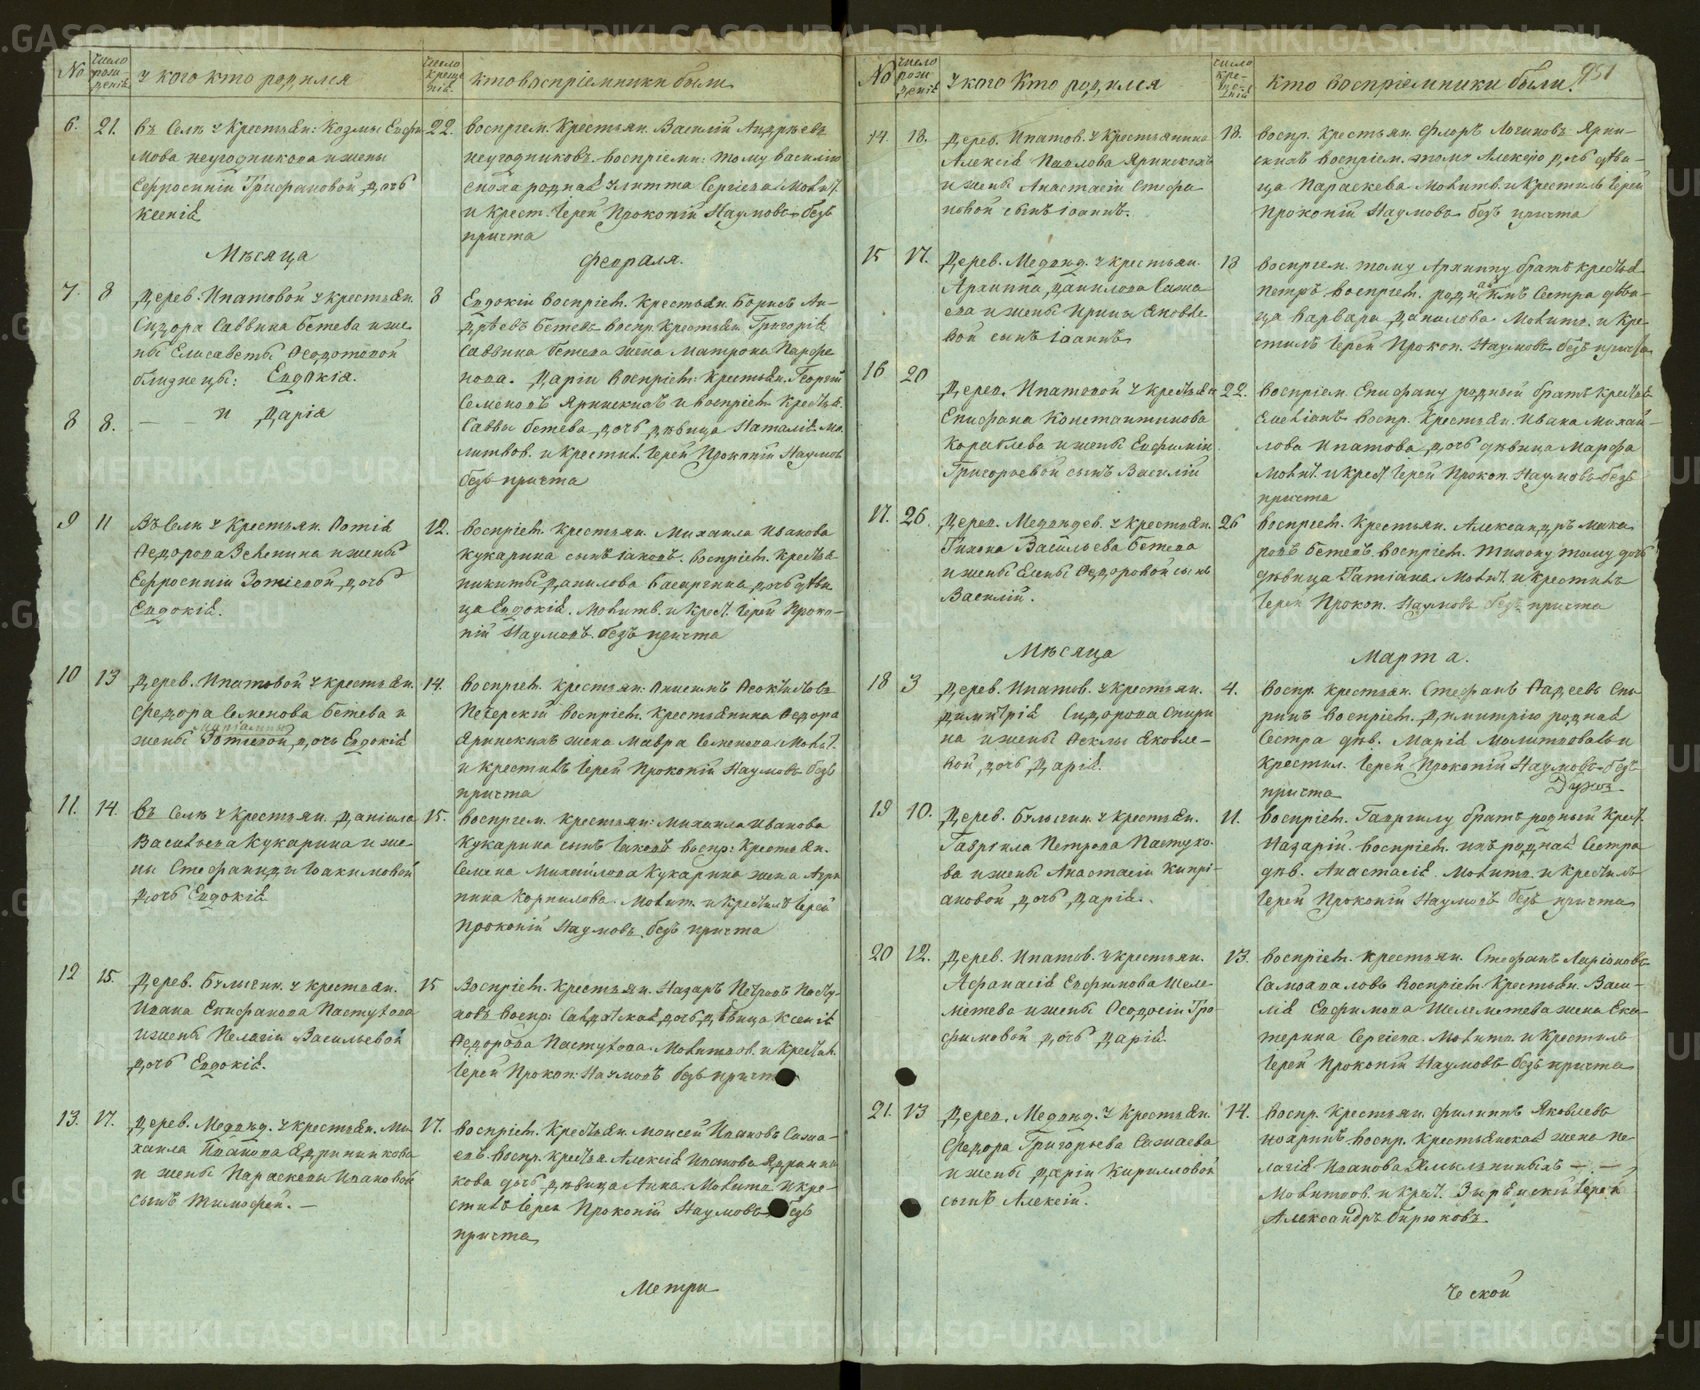 №
число рождения
У кого кто родился
число крещения
кто восприемники были
6. 21.
Въ Селѣ у Крестьян: Козмы Евфи
мова неугодникова и жены
Ефросиніи Трифановой, дочь
Ксенія
22.
Воспріем. Крестьян. Василій Андрѣевъ
неугодниковъ. воспріемн: тому Василію
сноха родная Улитта Сергіева. Молит.
и Крест. Іерей Прокопій Наумовъ безъ
причта
Мѣсяца
Февраля.
7. 8
Дерев. Ипатовой у крестьян.
Сидора Саввина Бетева и же
ны Елисаветы Ѳеодотовой
близнецы: Евдокія.
8 8.
— и Дарія
8
Евдокіи воспріем. Крестьян. Борисъ Ан-
дрѣевъ Бетевъ воспр. Крестьян. Григорія
Саввина Бетева жена Матрона Парфе
нова. Даріи воспріем: Крестьян. Георгій
Семеновъ Яринскихъ и воспріем. Крестья.
Саввы Бетева дочь дѣвица Наталія. Мо
литвов. и крестил. Іерей Прокопій Наумовъ
безъ причта
9 11
Въ Селѣ у Крестьян. Фотія
Ѳедорова и жены
Ефросиніи Зотіевой, дочь
Евдокія.
12.
Воспріем. Крестьян. Михаила Иванова
Кукарина сынъ Іаковъ. воспріем. Крестья.
Никиты Данилова дочь дѣви
ца Евдокія. Молитв. и Крест. Іерей Проко-
пій Наумовъ. безъ причта
10 13
Дерев. Ипатовой у крестьян.
Федора Семенова Бетева и
жены Зотіевой, дочь Евдокія
14.
Воспріем. Крестьян. Анисимъ
Печерскій воспріем. Крестьянина Ѳедора
Яринскихъ жена Мавра Семенова. Молит.
и крестилъ Іерей Прокопій Наумовъ безъ
причта
11. 14.
Въ Селѣ у Крестьян. Даніила
Васильева Кукарина и же-
ны Стефаниды Іоакимовой
дочь Евдокія
15.
Воспріем. Крестьян: Михаила Иванова
Кукарина сынъ Іаковъ воспр: Крестьян.
Семена Михайлова Кукарина жена Агри
пина Корнилова. Молит. и крестилъ Іерей
Прокопій Наумовъ. безъ причта
12 15.
Дерев. у крестьян.
Ивана Епифанова Пастухова
и жены Пелагіи Васильевой
дочь Евдокія.
15
Воспріем. Крестьян. Назаръ Петровъ Пасту-
ховъ воспр: Салдатская дочь дѣвица Ксенія
Ѳедорова Пастухова. Молитвов. и крестил.
Іерей Прокоп. Наумовъ безъ причта
13. 17.
Дерев. Медвѣд. у крестьян. Ми-
хаила Иванова
и жены Параскевы Ивановой
сынъ Тимофей. —
17.
Воспріем. Крестьян. Моисей Ивановъ Сажа-
евъ. воспр. крестья. Алексія Ипатова
кова дочь, дѣвица Анна. Молитв. и кре-
стилъ Іерей Прокопій Наумовъ безъ
причта
Метри
№
число рождения
У кого кто родился
число крещеній
Кто воспріемники были.
951
14. 18.
Дерев. Ипатов. у крестьянина
Алексія Павлова Яринскихъ
и жены Анастасіи Стефа
новой сынъ Іоаннъ.
18.
Воспр. крестьян. Флоръ Логиновъ Ярин-
скихъ воспріем. тому Алексію дочь дѣви-
ца Параскева Молитв. и Крестилъ Іерей
Прокопій Наумовъ безъ причта
15 17.
Дерев. Медвѣд. у крестьян.
Архиппа Данилова Сажа
ева и жены Ирины Яковле
вой сынъ Іоаннъ
18
Воспріем. тому Архиппу братъ крестья.
Петръ воспріем. родная имъ Сестра дѣви-
ца Варвара Данилова Молитв. и кре-
стилъ Іерей Прокоп. Наумовъ безъ причта
16 20
Дерев. Ипатовой у крестьян
Епифана Константинова
Кораблева и жены Евфиміи
Григорьевой сынъ Василій
22.
Воспріем. Епифану родный братъ крестья
воспр. крестьян. Ивана Михай-
лова Ипатова дочь дѣвица Марфа
Молит. и крест. Іерей Прокоп. Наумовъ безъ
причта
17. 26.
Дерев. Медвѣдев. у крестьян.
Тихона Васильева Бетева
и жены Елены Ѳедоровой сынъ
Василій.
26
Воспріем. Крестьян. Александръ Мака
ровъ Бетевъ. воспріем. Тихону тому дочь
дѣвица Татіана. Молит. и крестилъ
Іерей Прокоп. Наумовъ безъ причта
Мѣсяца
Марта.
18 3
Дерев. Ипатов. у крестьян.
Димитрія Сидорова Спири
на и жены Ѳеклы Яковле-
вой, дочь Дарія.
4.
Воспр. крестьян. Стефанъ Фадеевъ Спи
ринъ воспріем. Димитрію родная
Сестра дѣв. Марія Молитвовалъ и
крестил. Іерей Прокопій Наумовъ безъ
причта
19 10.
Дерев. у крестьян.
Гавріила Петрова Пастухо-
ва и жены Анастасіи Кипрі-
ановой, дочь Дарія.
11.
Воспріем. Гавріилу братъ родный Крест.
Назарій. воспріем. имъ родная Сестра
дѣв. Анастасія. Молитв. и крестилъ
Іерей Прокопій Наумовъ безъ причта
20 12.
Дерев. Ипатов. у крестьян.
Афанасія Евфимова Шеле-
метева и жены Ѳеодосіи Тро-
фимовой дочь Дарія.
13.
Воспріем. крестьян. Стефанъ Ларіоновъ
Самоваловъ воспріем. Крестьян. Васи-
лія Евфимова Шелеметева жена Ека-
терина Сергіева. Молитв. и Крестилъ
Іерей Прокопій Наумовъ безъ причта
21. 13
Дерев. Медвѣд. у крестьян.
Федора Григорьева Сажаева
и жены Даріи Кирилловой
сынъ Алексій.
14.
Воспр. крестьян. Филиппъ Яковлевъ
воспр. крестьянская жена Пе
лагія Иванова — —
Молитвов. и крест. Іерей
Александръ Бирюковъ.
ческой
METRIKI.GASO-URAL.RU